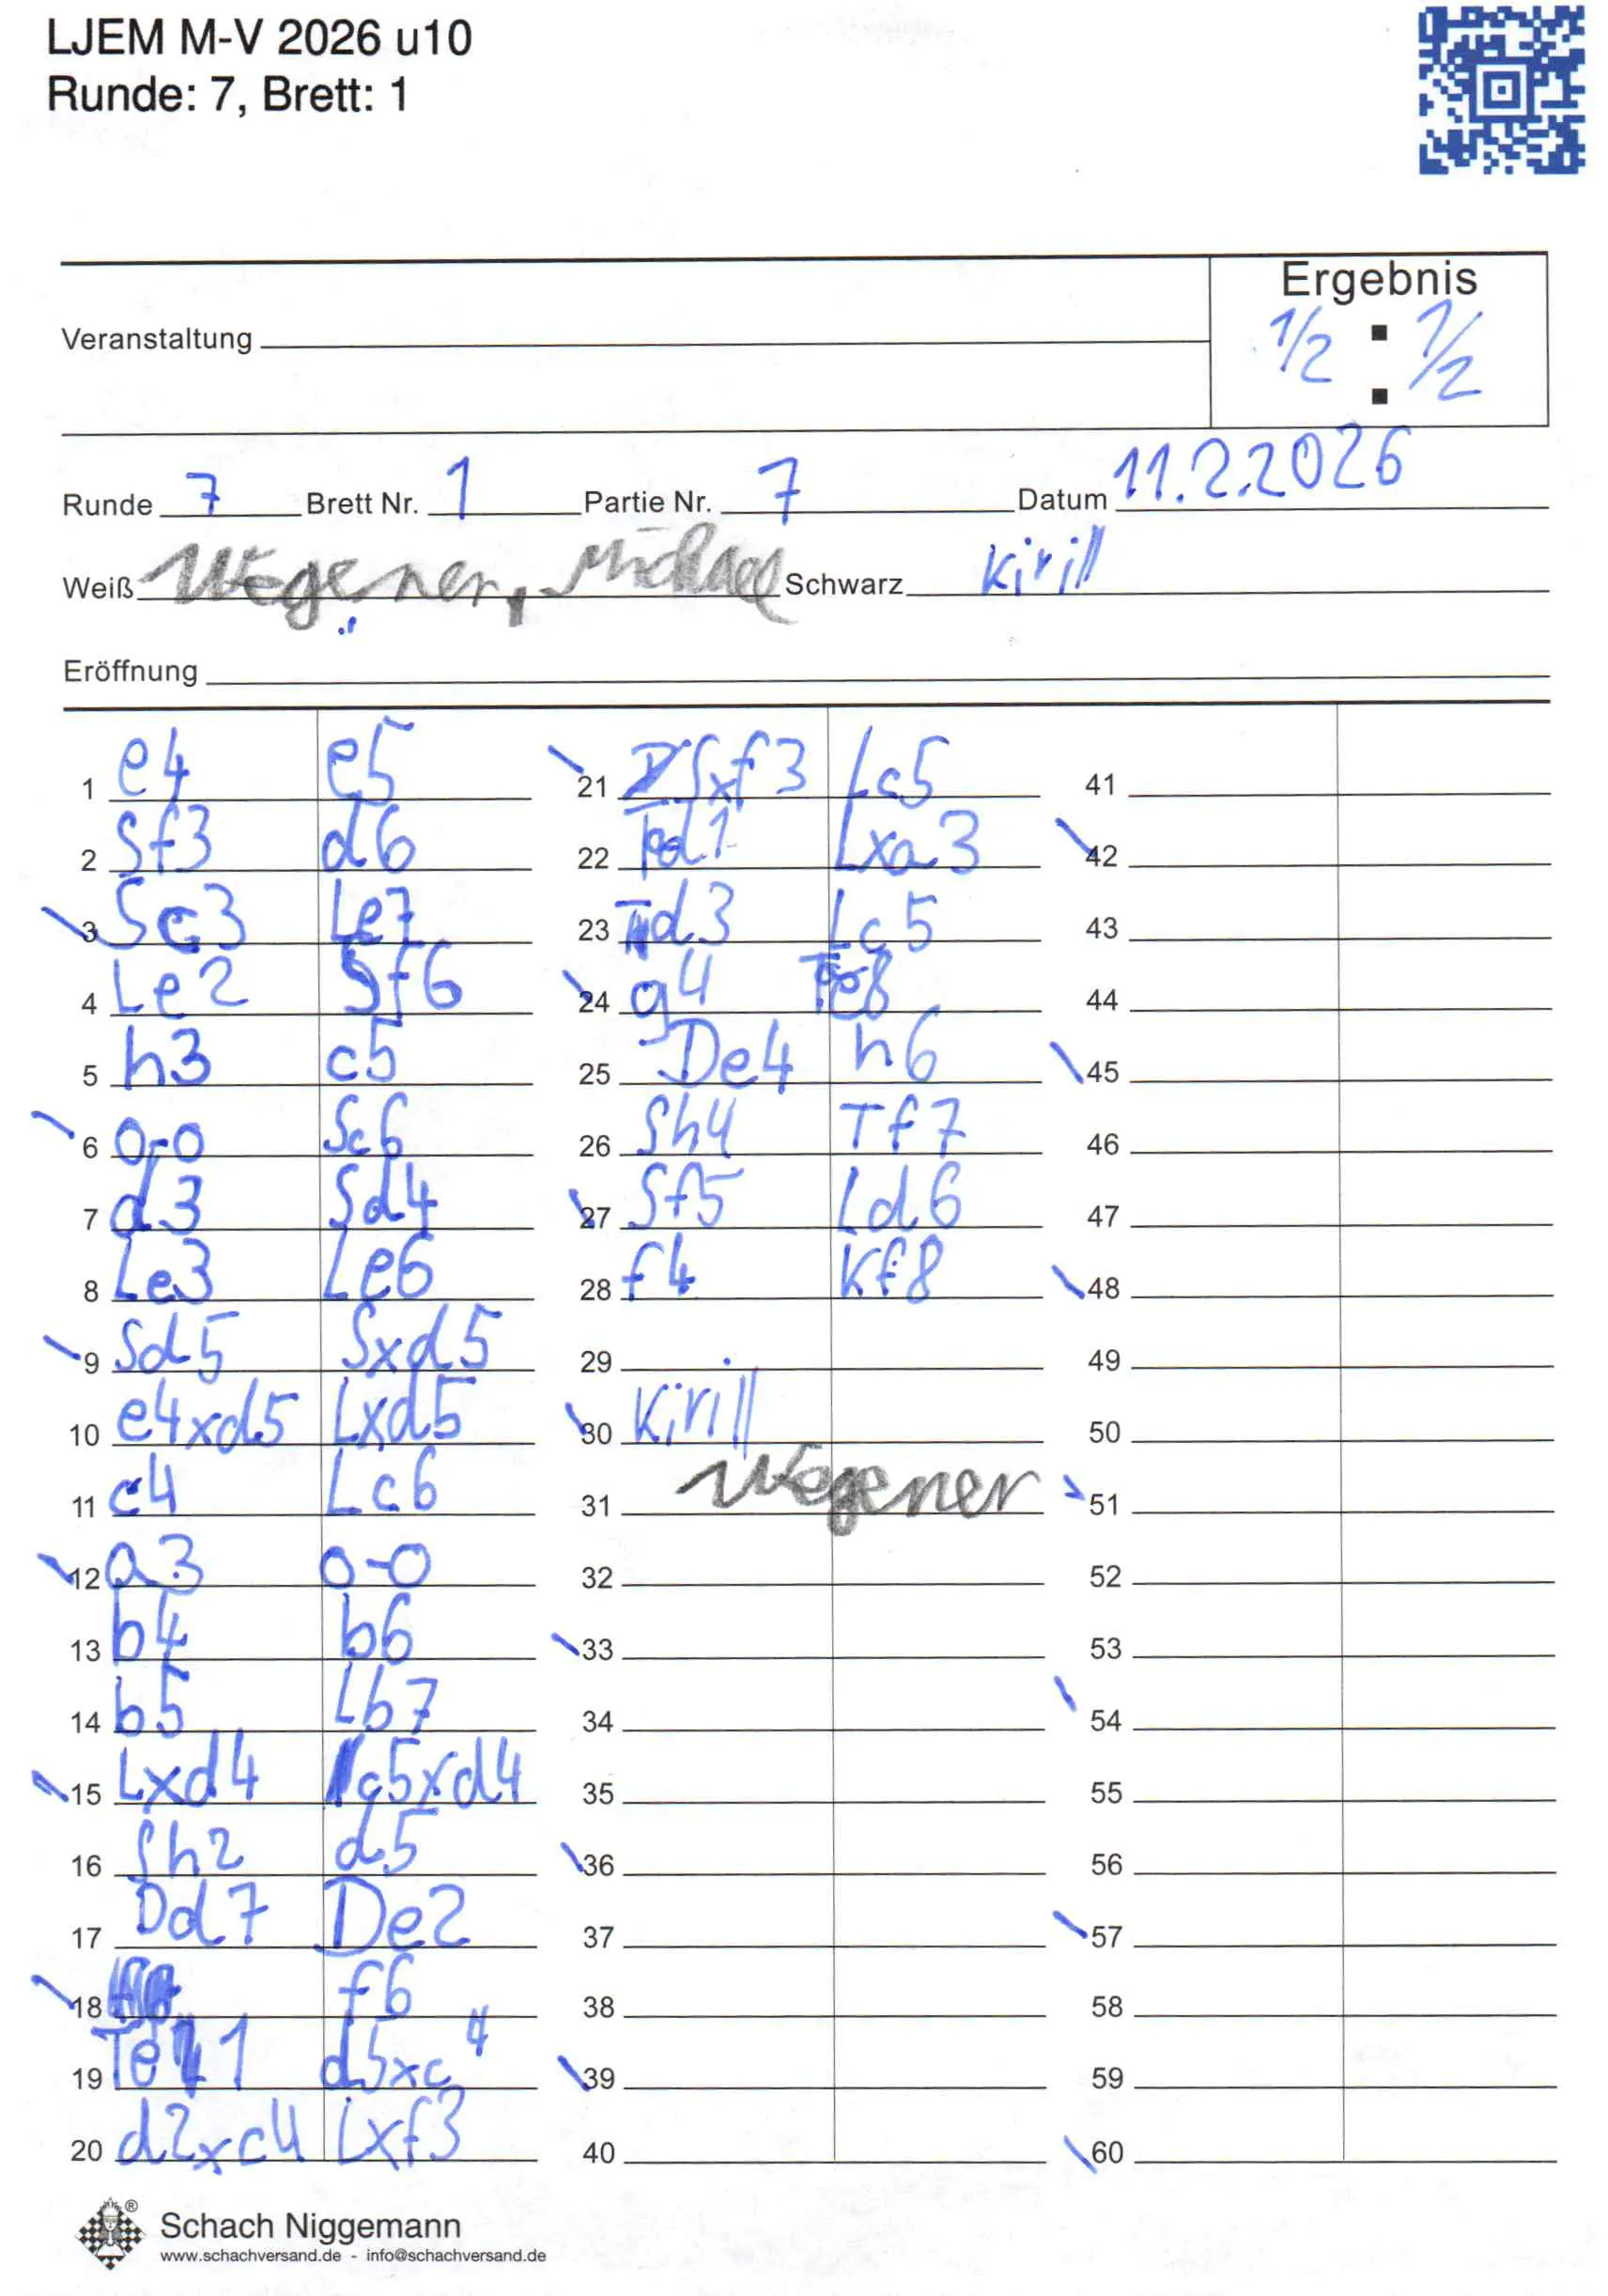 LJEM M-V 2026 u10
Runde: 7, Brett: 1
Ergebnis
Veranstaltung
1/2 : 1/2
Runde 7 Brett Nr. 1 Partie Nr. 7 Datum 11.2.2026
Weiß Wegener, Michael Schwarz Kirill
Eröffnung
1 e4 e5
2 Sf3 d6
3 Sc3 Le7
4 Le2 Sf6
5 h3 c5
6 0-0 Sc6
7 d3 Sd4
8 Le3 Le6
9 Sd5 Sxd5
10 e4xd5 Lxd5
11 c4 Lc6
12 a3 0-0
13 b4 b6
14 b5 Lb7
15 Lxd4 c5xd4
16 Sh2 d5
17 Dd7 De2
18 f6
19 Te1 d5xc4
20 d2xc4 Lxf3
21 Sxf3 Lc5
22 Td1 Lxa3
23 Td3 Lc5
24 g4 Te8
25 De4 h6
26 Sh4 Tf7
27 Sf5 Ld6
28 f4 Kf8
29
30 Kirill
31 Wegener
32
33
34
35
36
37
38
39
40
41
42
43
44
45
46
47
48
49
50
51
52
53
54
55
56
57
58
59
60
®
Schach Niggemann
www.schachversand.de - info@schachversand.de